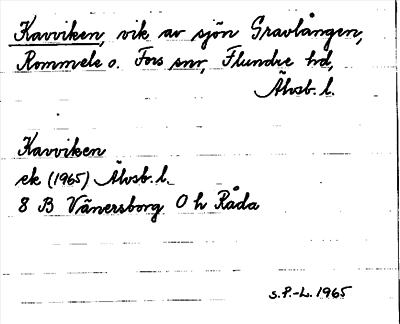 Kavviken, vik av sjön Gravlången,
Rommele o. Fors snr, Flundre hd,
Älvsb. l.
Kavviken
ek (1965) Älvsb. l.
8 B Vänersborg O h Råda
S.P.-L. 1965